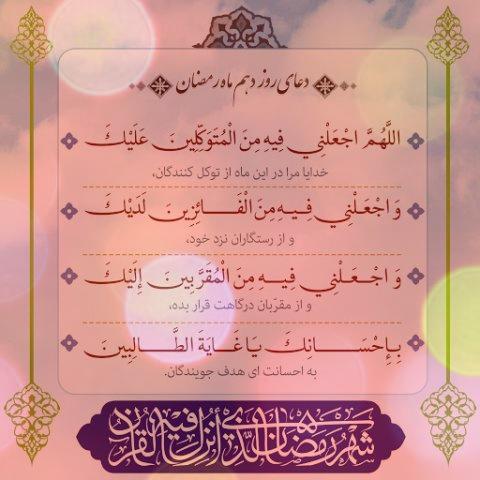 دعای روز دهم ماه رمضان
اللَّهُمَّ اجْعَلْنِي فِيهِ مِنَ الْمُتَوَكِّلِينَ عَلَيْكَ
خدایا مرا در این ماه از توکل کنندگان،
وَ اجْعَلْنِي فِيهِ مِنَ الْفَائِزِينَ لَدَيْكَ
و از رستگاران نزد خود،
وَ اجْعَلْنِي فِيهِ مِنَ الْمُقَرَّبِينَ إِلَيْكَ
و از مقرّبان درگاهت قرار بده،
بِإِحْسَانِكَ يَا غَايَةَ الطَّالِبِينَ
به احسانت ای هدف جویندگان.
شَهْرُ رَمَضَانَ الَّذِي أُنْزِلَ فِيهِ الْقُرْآنُ